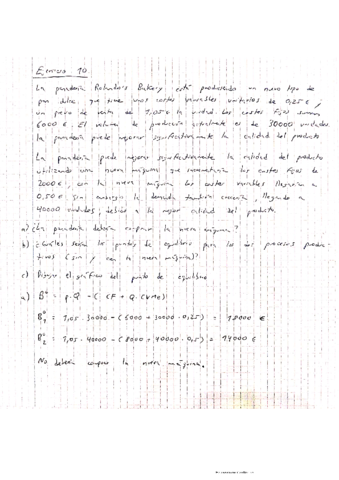 Ejercicio 10
La panadería Bakery está produciendo un nuevo tipo de
pan dulce que tiene unos costes variables unitarios de 0,25 € y
un precio de venta de 1,05 € la unidad. Los costes fijos suman
6000 €. El volumen de producción actualmente es de 30000 unidades.
La panadería puede mejorar significativamente la calidad del producto
La panadería puede mejorar significativamente la calidad del producto
utilizando una nueva máquina que los costes fijos de
2000 €, con la nueva máquina los costes variables
0,50 € sin embargo la demanda también crecería, llegando a
40000 unidades, debido a la mejor calidad del producto.
a) ¿La panadería debería comprar la nueva máquina?
b) ¿Cuáles serían los puntos de equilibrio para los dos procesos produc-
tivos (sin y con la nueva máquina)?
c) el gráfico del punto de equilibrio
a) B = p.Q - (CF + Q.CVMe)
B = 1,05.30000 - (6000 + 30000.0,25) = 18000 €
B = 1,05.40000 - (8000 + 40000.0,5) = 14000 €
No debería comprar la nueva máquina.